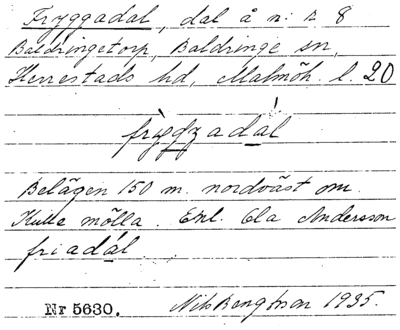 Fryggadal, dal å n:r 8
Baldringetorp, Baldringe sn,
Herrestads hd, Malmöh. l. 20
frỳggadàl
Belägen 150 m. nordväst om
Kulle mölla. Enl. Ola Andersson
friadál
Nr 5630. Nils Bengtson 1935.